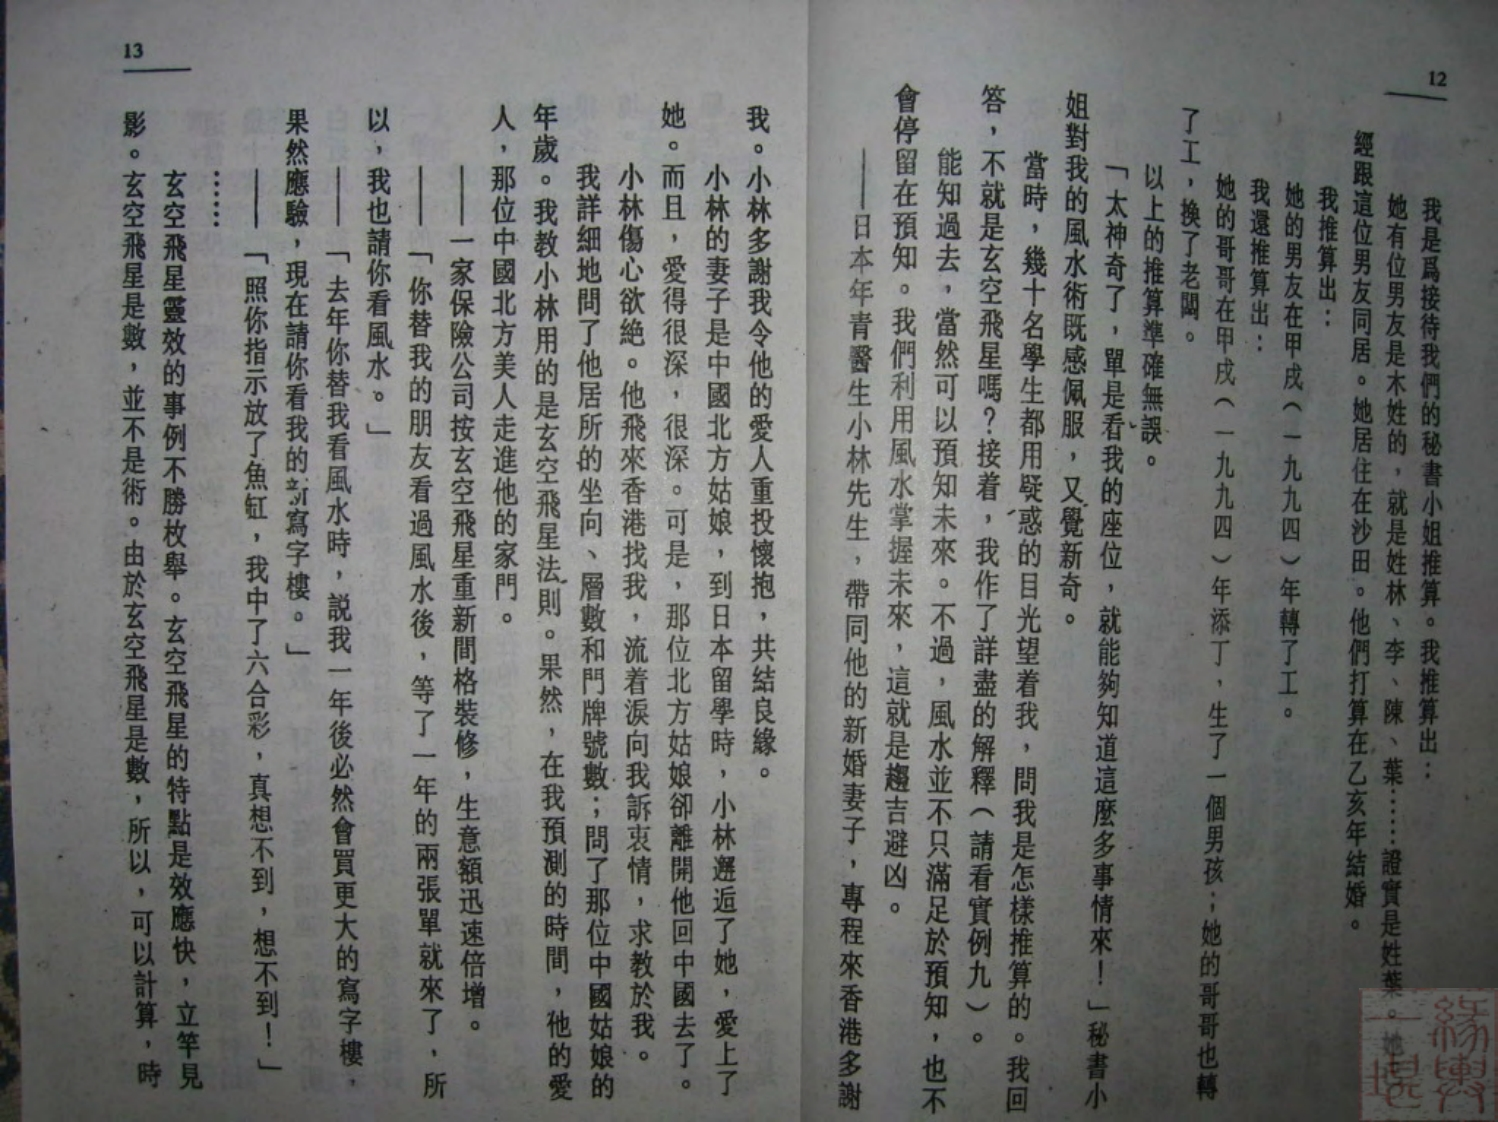 12
我是爲接待我們的秘書小姐推算。我推算出：
她有位男友是木姓的，就是姓林、李、陳、葉……證實是姓葉。她已
經跟這位男友同居。她居住在沙田。他們打算在乙亥年結婚。
我推算出：
她的男友在甲戌（一九九四）年轉了工。
我還推算出：
她的哥哥在甲戌（一九九四）年添丁，生了一個男孩；她的哥哥也轉
了工，換了老闆。
以上的推算準確無誤。
「太神奇了，單是看我的座位，就能夠知道這麼多事情來！」秘書小
姐對我的風水術既感佩服，又覺新奇。
當時，幾十名學生都用疑惑的目光望着我，問我是怎樣推算的。我回
答，不就是玄空飛星嗎？接着，我作了詳盡的解釋（請看實例九）。
能知過去，當然可以預知未來。不過，風水並不只滿足於預知，也不
會停留在預知。我們利用風水掌握未來，這就是趨吉避凶。
——日本年青醫生小林先生，帶同他的新婚妻子，專程來香港多謝
13
我。小林多謝我令他的愛人重投懷抱，共結良緣。
小林的妻子是中國北方姑娘，到日本留學時，小林邂逅了她，愛上了
她。而且，愛得很深，很深。可是，那位北方姑娘卻離開他回中國去了。
小林傷心欲絕。他飛來香港找我，流着淚向我訴衷情，求教於我。
我詳細地問了他居所的坐向、層數和門牌號數；問了那位中國姑娘的
年歲。我教小林用的是玄空飛星法則。果然，在我預測的時間，他的愛
人，那位中國北方美人走進他的家門。
——一家保險公司按玄空飛星重新間格裝修，生意額迅速倍增。
——「你替我的朋友看過風水後，等了一年的兩張單就來了，所
以，我也請你看風水。」
——「去年你替我看風水時，説我一年後必然會買更大的寫字樓，
果然應驗，現在請你看我的新寫字樓。」
——「照你指示放了魚缸，我中了六合彩，真想不到，想不到！」
……
玄空飛星靈效的事例不勝枚舉。玄空飛星的特點是效應快，立竿見
影。玄空飛星是數，並不是術。由於玄空飛星是數，所以，可以計算，時